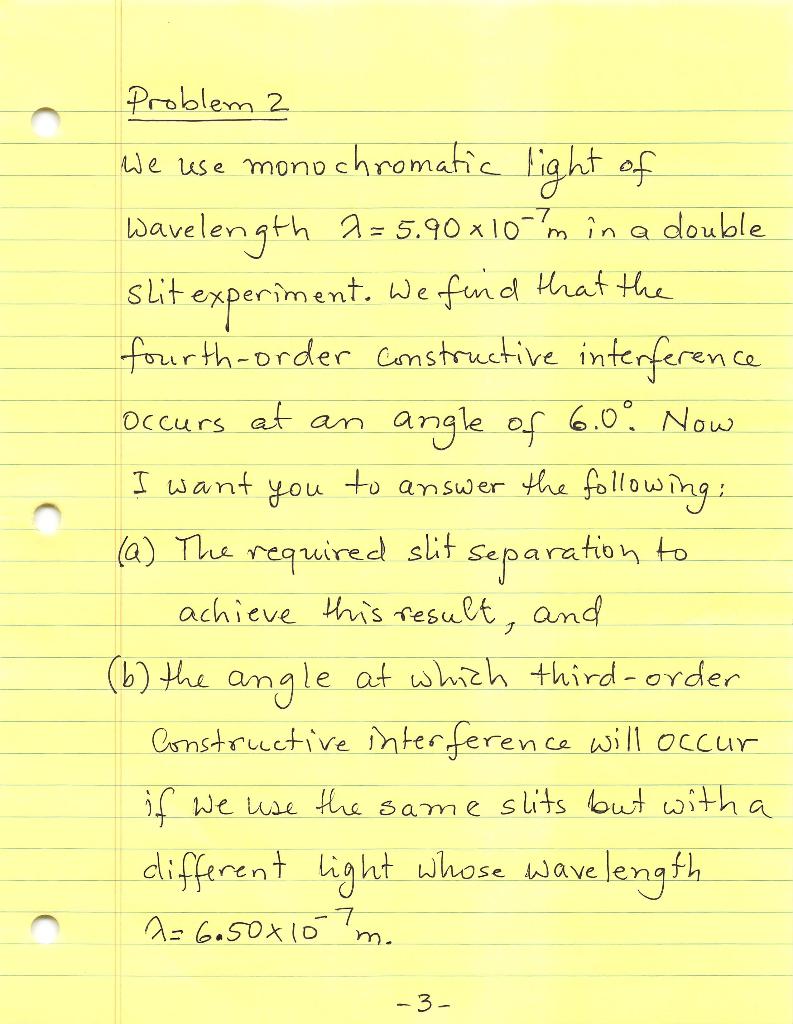 Problem 2
We use monochromatic light of
wavelength λ = 5.90 x 10⁻⁷m in a double
slit experiment. We find that the
fourth-order constructive interference
occurs at an angle of 6.0°. Now
I want you to answer the following:
(a) The required slit separation to
achieve this result, and
(b) the angle at which third-order
Constructive interference will occur
if we use the same slits but with a
different light whose wavelength
λ = 6.50 x 10⁻⁷m.
-3-